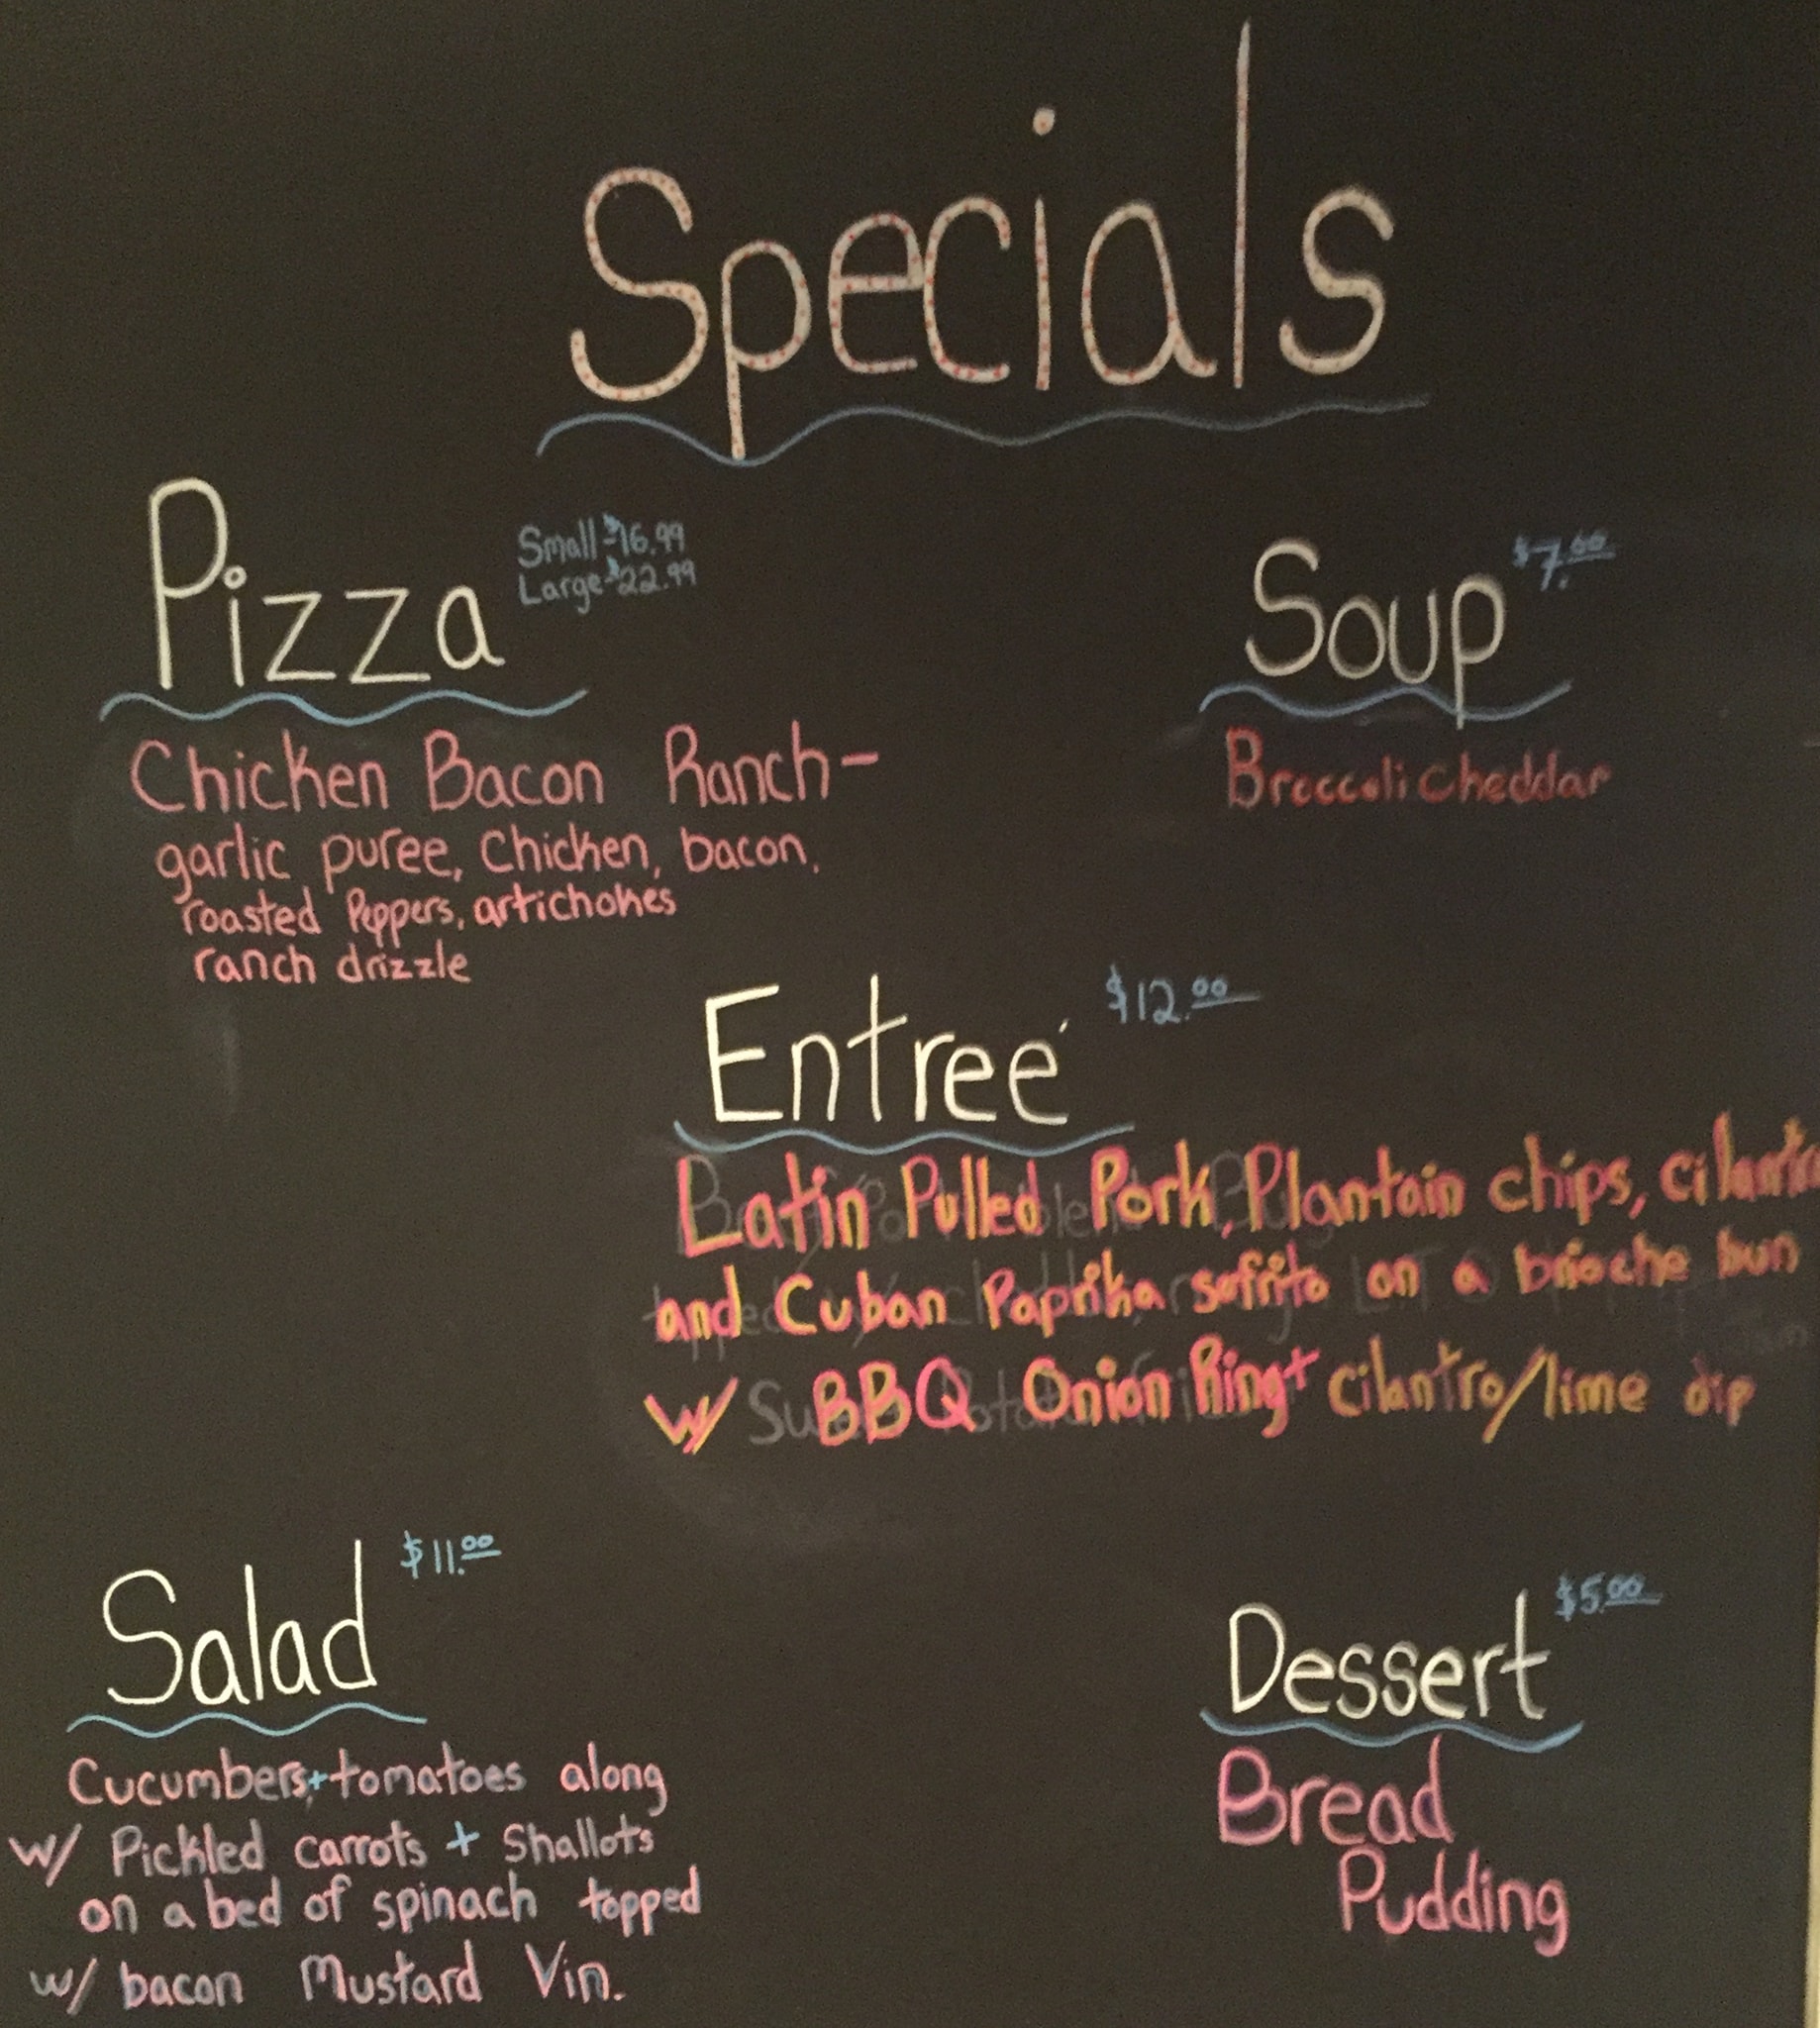 Specials
Pizza
Small-$16.99
Large-$22.99
Chicken Bacon Ranch-
garlic puree, Chicken, bacon,
roasted Peppers, artichokes
ranch drizzle
Soup $7.00
Broccoli cheddar
Entreé $12.00
Latin Pulled Pork, Plantain chips, cilantro
and Cuban Paprika sofrito on a brioche bun
w/ BBQ Onion Ring + cilantro/lime dip
Salad $11.00
Cucumbers + tomatoes along
w/ Pickled carrots + Shallots
on a bed of spinach topped
w/ bacon Mustard Vin.
Dessert $5.00
Bread
Pudding